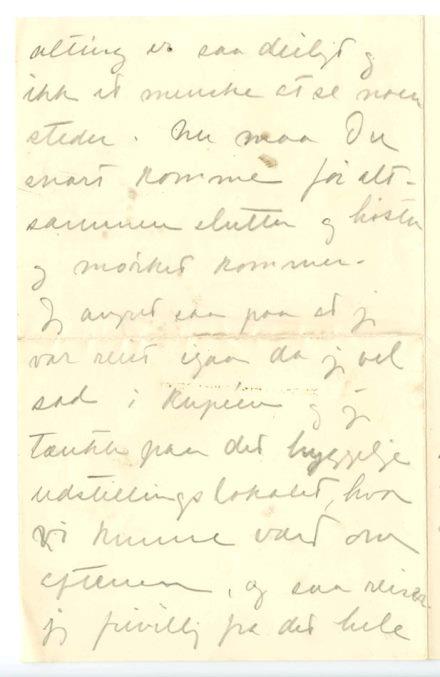 alting er saa deiligt og
ikke et menske at se noen
steder. Nu maa Du
snart komme før alt-
sammen slutter og høsten
og mørket kommer.
Jeg angret saa paa at jeg
var reist igaar da jeg vel
sad i kupeen og jeg
tænkte paa det hyggelige
udstillingslokalet, hvor
vi kunne vært om
aftenen, og saa reiser
jeg frivillig fra det hele